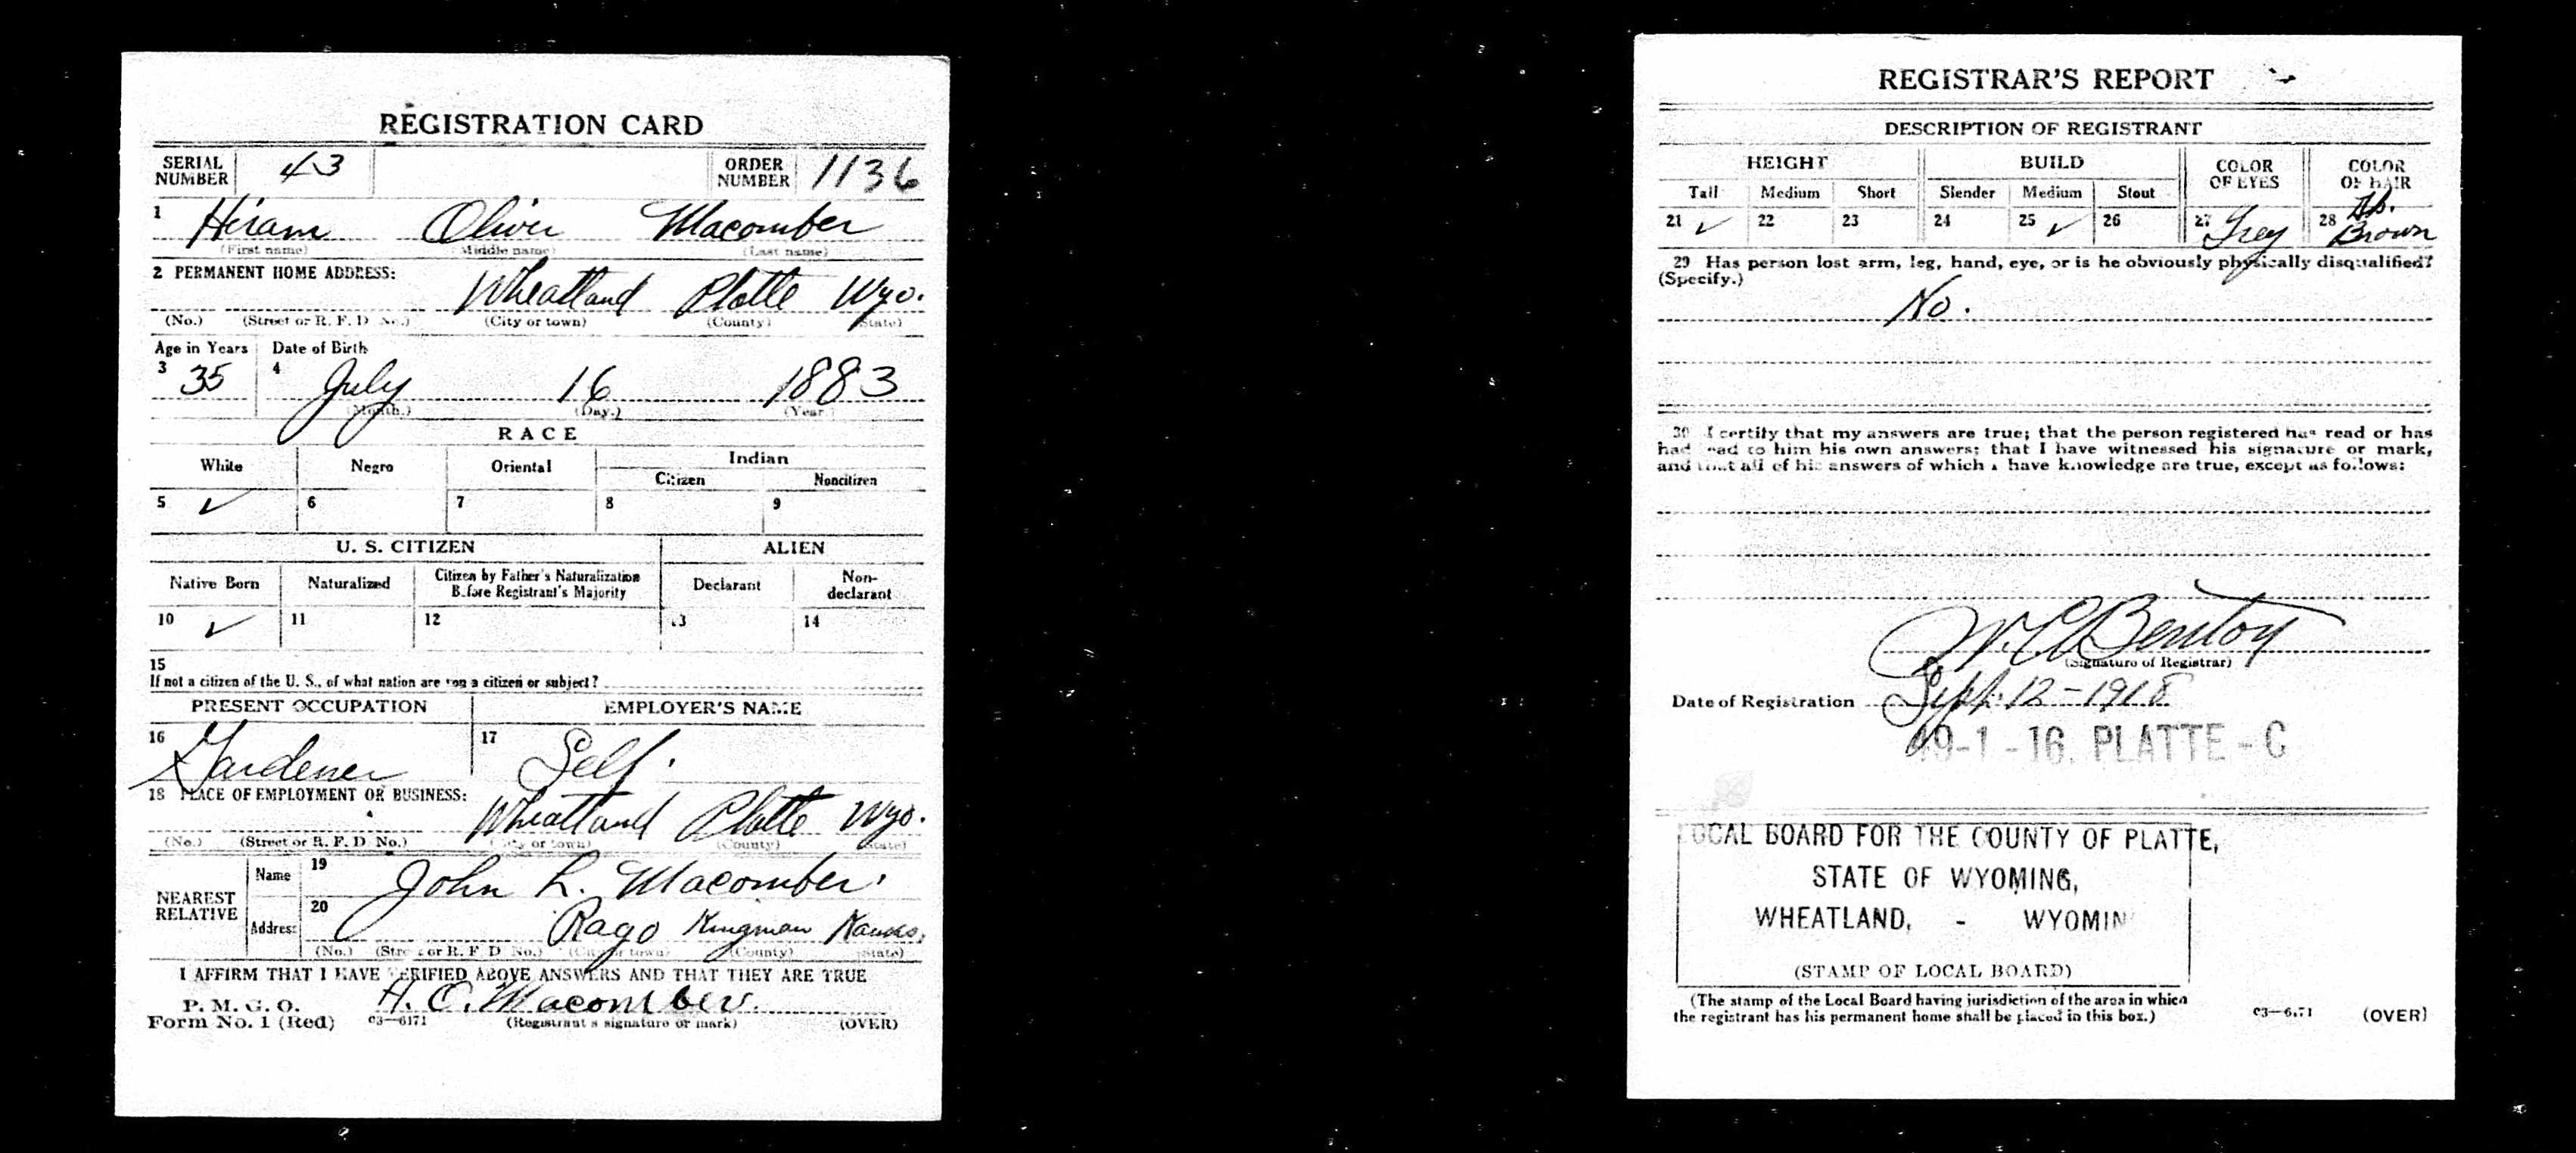 REGISTRATION CARD
SERIAL NUMBER 43 ORDER NUMBER 1136
1 Hiram Oliver Macomber
(First name) (Middle name) (Last name)
2 PERMANENT HOME ADDRESS:
Wheatland Platte Wyo.
(No.) (Street or R. F. D. No.) (City or town) (County) (State)
Age in Years Date of Birth
3 35 4 July 16 1883
(Month.) (Day.) (Year.)
RACE
White Negro Oriental Indian
Citizen Noncitizen
5 ✓ 6 7 8 9
U. S. CITIZEN ALIEN
Native Born Naturalized Citizen by Father's Naturalization Before Registrant's Majority Declarant Non-declarant
10 ✓ 11 12 13 14
15
If not a citizen of the U. S., of what nation are you a citizen or subject?
PRESENT OCCUPATION EMPLOYER'S NAME
16 Gardener 17 Self.
18 PLACE OF EMPLOYMENT OR BUSINESS:
Wheatland Platte Wyo.
(No.) (Street or R. F. D. No.) (City or town) (County) (State)
NEAREST RELATIVE
Name 19 John L. Macomber.
Address 20 Rago Kingman Kansas.
(No.) (Street or R. F. D. No.) (City or town) (County) (State)
I AFFIRM THAT I HAVE VERIFIED ABOVE ANSWERS AND THAT THEY ARE TRUE
P. M. G. O.
Form No. 1 (Red) 03—6171 H. O. Macomber.
(Registrant's signature or mark) (OVER)
REGISTRAR'S REPORT
DESCRIPTION OF REGISTRANT
HEIGHT BUILD COLOR OF EYES COLOR OF HAIR
Tall Medium Short Slender Medium Stout
21 ✓ 22 23 24 25 ✓ 26 27 Grey 28 Brown
29 Has person lost arm, leg, hand, eye, or is he obviously physically disqualified?
(Specify.)
No.
30 I certify that my answers are true; that the person registered has read or has
had read to him his own answers; that I have witnessed his signature or mark,
and that all of his answers of which I have knowledge are true, except as follows:
Benton
(Signature of Registrar)
Date of Registration Sept. 12-1918
49-1-16. PLATTE-C
LOCAL BOARD FOR THE COUNTY OF PLATTE,
STATE OF WYOMING,
WHEATLAND, - WYOMIN
(STAMP OF LOCAL BOARD)
(The stamp of the Local Board having jurisdiction of the area in which
the registrant has his permanent home shall be placed in this box.)
03—6171 (OVER)